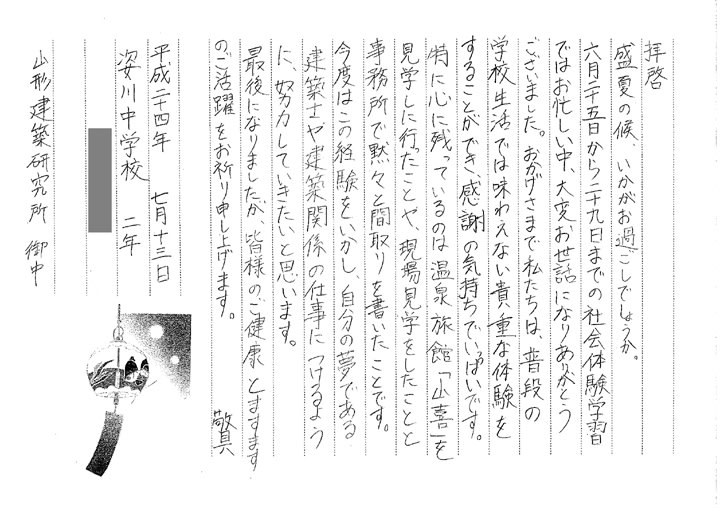 拝啓
盛夏の候、いかがお過ごしでしょうか。
六月二十五日から二十九日までの社会体験学習
ではお忙しい中、大変お世話になりありがとう
ございました。おかげさまで私たちは、普段の
学校生活では味わえない貴重な体験を
することができ、感謝の気持ちでいっぱいです。
特に心に残っているのは温泉旅館「山喜」を
見学しに行ったことや、現場見学をしたことと
事務所で黙々と間取りを書いたことです。
今度はこの経験をいかし、自分の夢である
建築士や建築関係の仕事につけるよう
に、努力していきたいと思います。
最後になりましたが、皆様のご健康とますます
のご活躍をお祈り申し上げます。
敬具
平成二十四年 七月十三日
姿川中学校 二年
山形建築研究所 御中